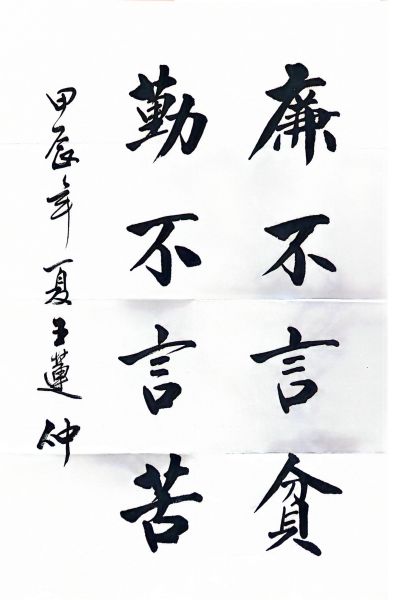 廉不言貧
勤不言苦
甲辰年夏王蓮仲